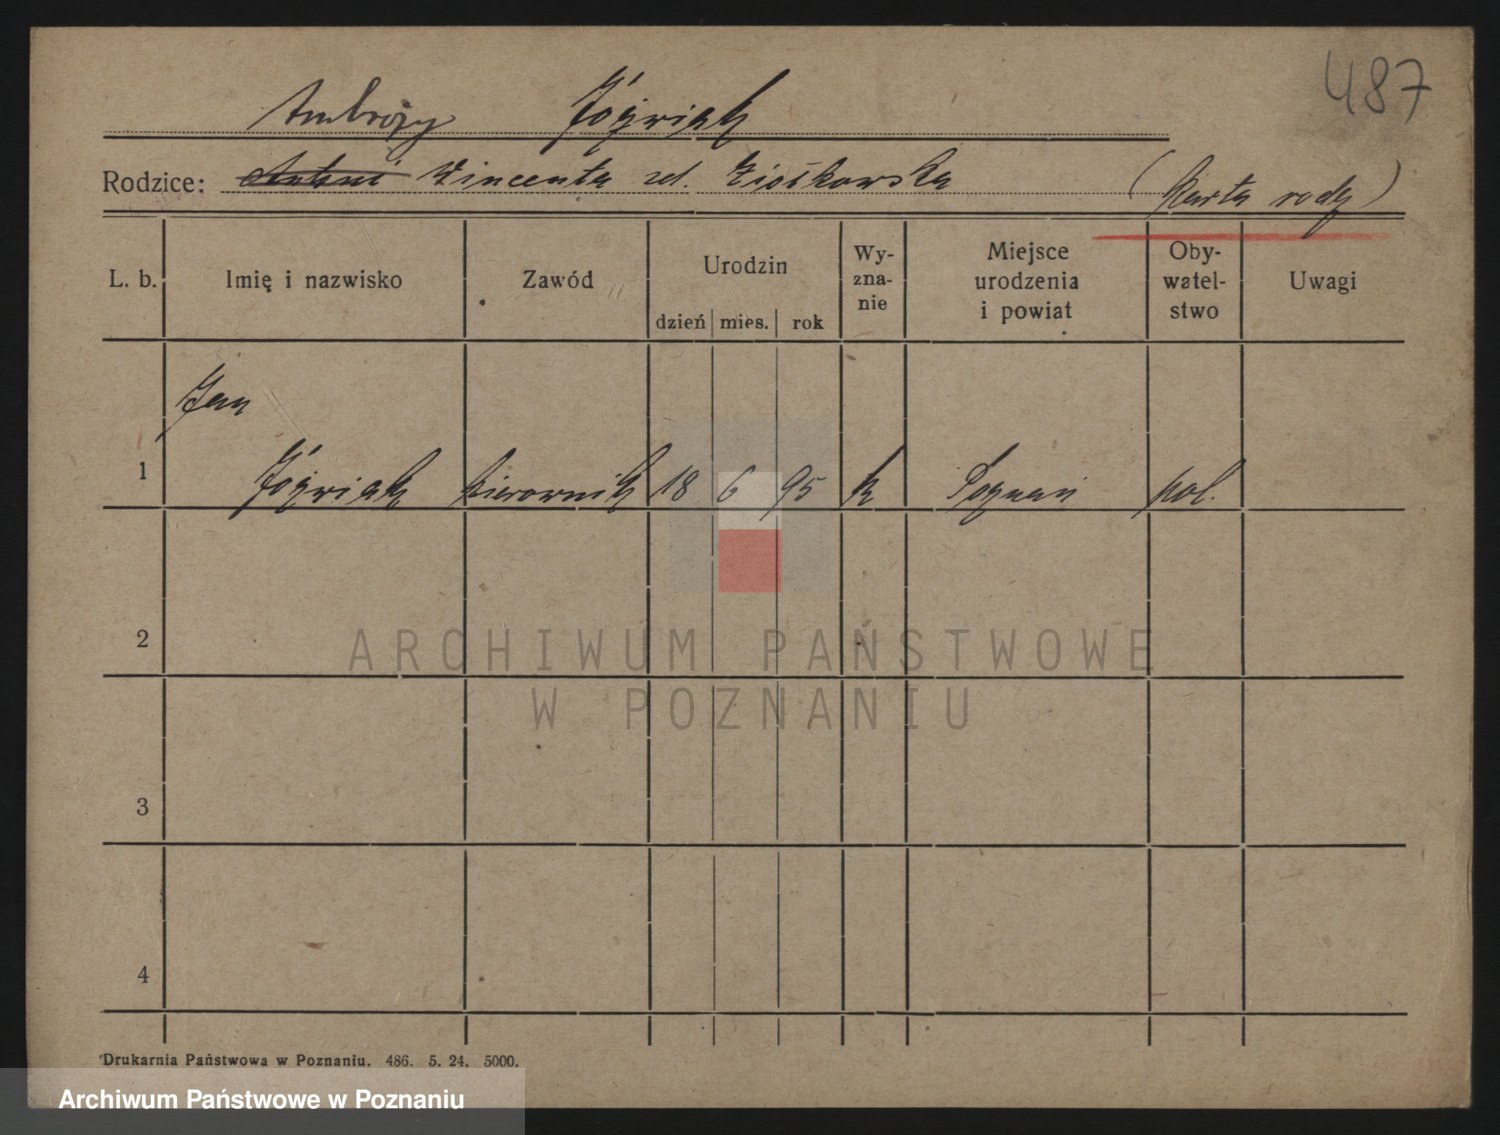 487
Ambroży Józwiak
Rodzice: Antoni Wincenta zd. Ziółkowska (Karta rodz)
L. b. Imię i nazwisko Zawód Urodzin dzień mies. rok Wy- zna- nie Miejsce urodzenia i powiat Oby- watel- stwo Uwagi
Jan
1 Józwiak kierownik 18 6 95 k Poznań pol.
2
ARCHIWUM PAŃSTWOWE
W POZNANIU
3
4
Drukarnia Państwowa w Poznaniu. 486. 5. 24. 5000.
Archiwum Państwowe w Poznaniu